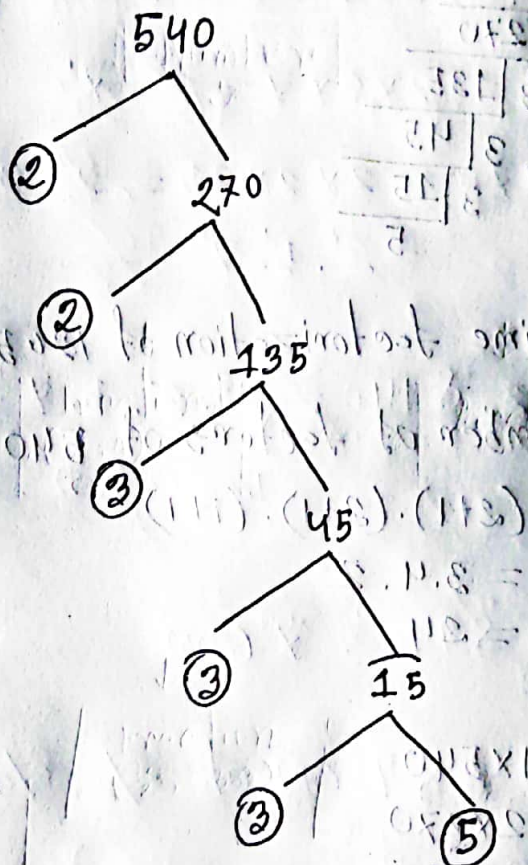 540
2
270
2
135
3
45
3
15
3
5